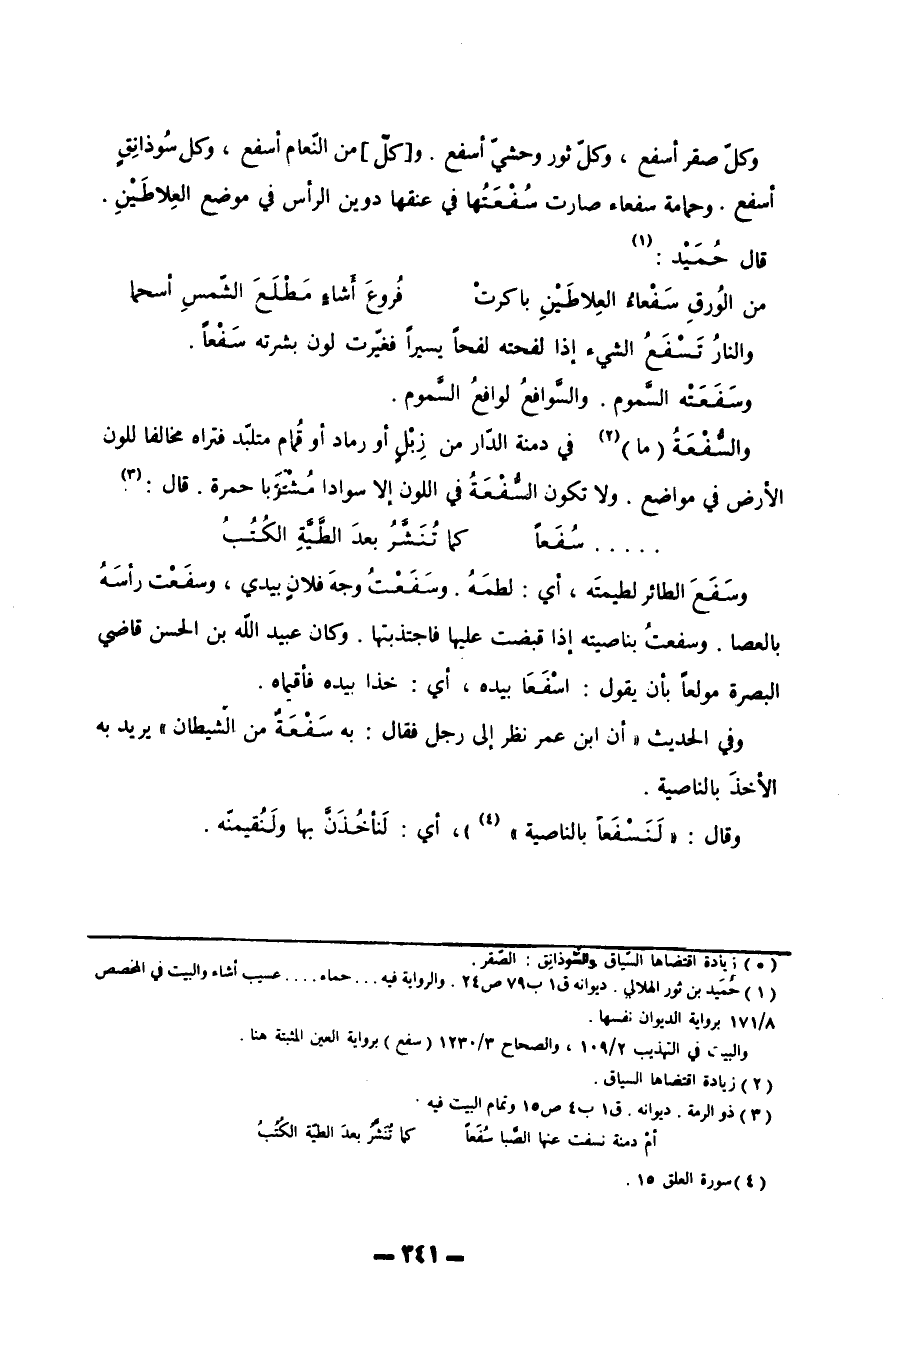 وكلّ صقر أسفع ، وكلّ ثور وحشيّ أسفع . و[كلّ ] من النّعام أسفع ، وكل سُوذانِقٍ
أسفع . وحمامة سفعاء صارت سُفْعَتُها في عنقها دوين الرأس في موضع العِلاطَيْنِ .
قال حُمَيْد : (١)
من الوُرقِ سَفْعاءُ العِلاطَيْنِ باكرتْ فُروعَ أَشاءٍ مَطْلَعَ الشّمسِ أسحما
والنارُ تَسْفَعُ الشيء إذا لفحته لفحاً يسيراً فغيّرت لون بشرته سَفْعاً .
وسَفَعَتْه السَّموم . والسَّوافعُ لوافعُ السَّموم .
والسُّفْعَةُ ( ما )(٢) في دمنة الدّار من زِبْلٍ أو رماد أو قُمام متلبّد فتراه مخالفا للون
الأرض في مواضع . ولا تكون السُّفْعَةُ في اللون إلا سوادا مُشْتَرَبا حمرة . قال : (٣)
..... سُفَعاً كما تُنَشَّرُ بعدَ الطَّيَّةِ الكُتُبُ
وسَفَعَ الطائر لطيمتَه ، أي : لطمَهُ . وسَفَعْتُ وجهَ فلانٍ بيدي ، وسفَعْت رأسَهُ
بالعصا . وسفعتُ بناصيته إذا قبضت عليها فاجتذبتها . وكان عبيد الله بن الحسن قاضي
البصرة مولعاً بأن يقول : اسْفَعَا بيده ، أي : خذا بيده فأقيماه .
وفي الحديث « أن ابن عمر نظر إلى رجل فقال : به سَفْعَةٌ من الشّيطان » يريد به
الأخذَ بالناصية .
وقال : « لَنَسْفَعاً بالناصية » (٤) )، أي : لَنأخُذَنَّ بها ولَنُقيمنّه .
( ٥ ) زيادة اقتضاها السّياق والسّوذانِق : الصّقر .
( ١ ) حُمَيد بن ثور الهلالي . ديوانه ق١ ب٧٩ ص٢٤ . والرواية فيه ... حماء .... عسيب أشاء والبيت في المخصص
١٧١/٨ برواية الديوان نفسها .
والبيت في التهذيب ١٠٩/٢ ، والصحاح ١٢٣٠/٣ ( سفع ) برواية العين المثبتة هنا .
( ٢ ) زيادة اقتضاها السياق .
( ٣ ) ذو الرمة . ديوانه . ق١ ب٤ ص١٥ وتمام البيت فيه .
أمْ دمنة نسفت عنها الصَّبا سُفَعاً كما تُنَشَّرُ بعدَ الطيّة الكُتُبُ
( ٤ ) سورة العلق ١٥ .
– ٣٤١ –